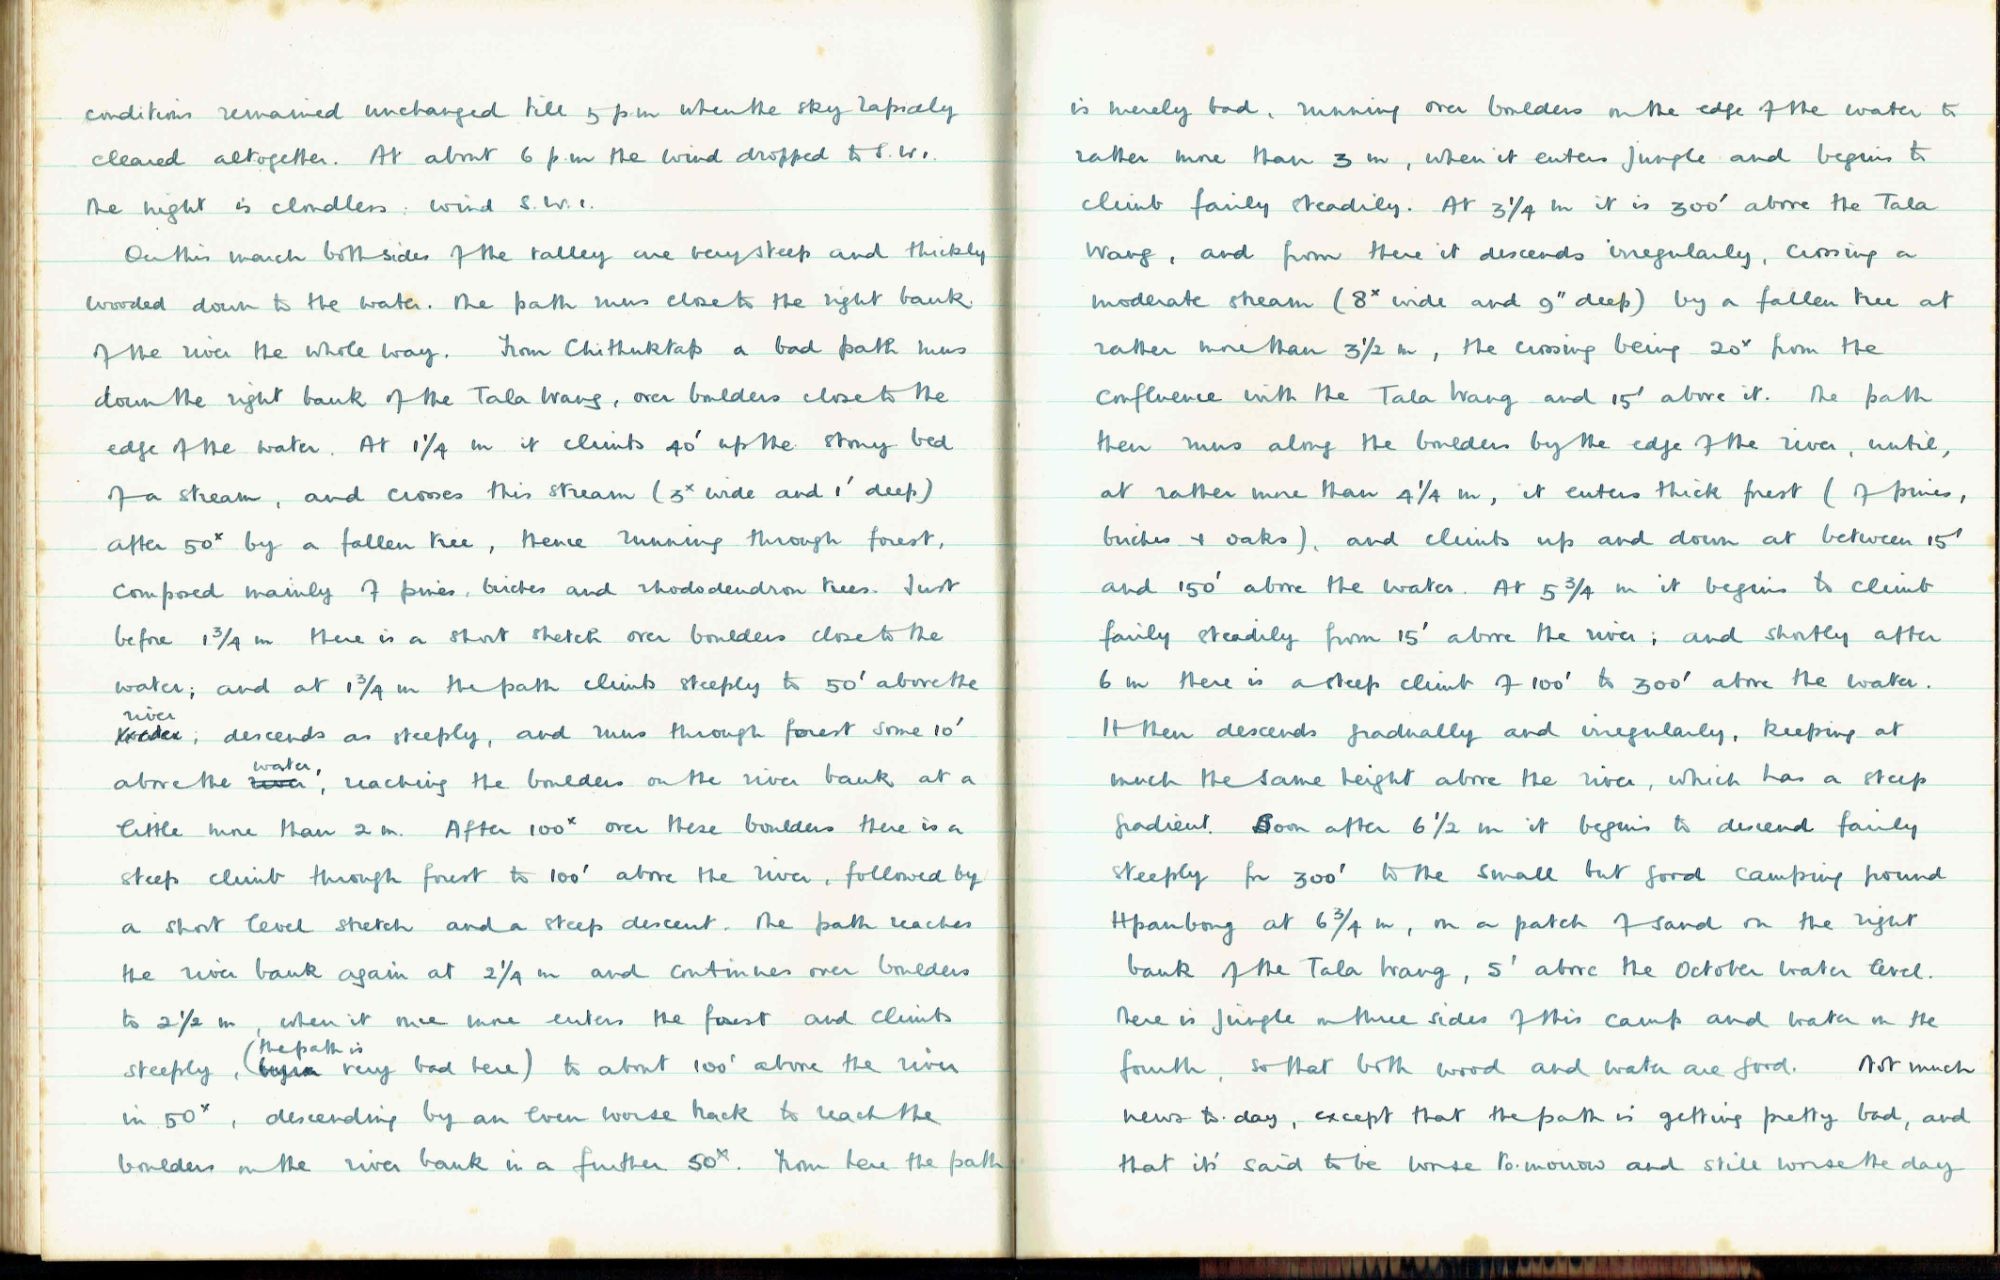 conditions remained unchanged till 5 p.m when the sky rapidly
cleared altogether. At about 6 p.m the wind dropped to S.W.1.
The night is cloudless: wind S.W.1.
On this march both sides of the valley are very steep and thickly
wooded down to the water. The path runs close to the right bank
of the river the whole way. From Chithuktap a bad path runs
down the right bank of the Tala Wang, over boulders close to the
edge of the water. At 1¼ m it climbs 40' up the stony bed
of a stream, and crosses this stream (3ˣ wide and 1' deep)
after 50ˣ by a fallen tree, thence running through forest,
composed mainly of pines, birches and rhododendron trees. Just
before 1¾ m there is a short stretch over boulders close to the
water; and at 1¾ m the path climbs steeply to 50' above the
river; descends as steeply, and runs through forest some 10'
above the river water, reaching the boulders on the river bank at a
little more than 2 m. After 100ˣ over these boulders there is a
steep climb through forest to 100' above the river, followed by
a short level stretch and a steep descent. The path reaches
the river bank again at 2¼ m and continues over boulders
to 2½ m, when it once more enters the forest and climbs
steeply, (the path is very bad here) to about 100' above the river
in 50ˣ, descending by an even worse track to reach the
boulders on the river bank in a further 50ˣ. From here the path
is merely bad, running over boulders on the edge of the water to
rather more than 3 m, when it enters jungle and begins to
climb fairly steadily. At 3¼ m it is 300' above the Tala
Wang, and from there it descends irregularly, crossing a
moderate stream (8ˣ wide and 9" deep) by a fallen tree at
rather more than 3½ m, the crossing being 20ˣ from the
confluence with the Tala Wang and 15' above it. The path
then runs along the boulders by the edge of the river, until,
at rather more than 4¼ m, it enters thick forest (of pines,
birches + oaks), and climbs up and down at between 15'
and 150' above the water. At 5¾ m it begins to climb
fairly steadily from 15' above the river; and shortly after
6 m there is a steep climb of 100' to 300' above the water.
It then descends gradually and irregularly, keeping at
much the same height above the river, which has a steep
gradient. Soon after 6½ m it begins to descend fairly
steeply for 300' to the small but good camping ground
Hpaubong at 6¾ m, on a patch of sand on the right
bank of the Tala Wang, 5' above the October water level.
There is jungle on three sides of this camp and water on the
fourth, so that both wood and water are good. Not much
news to.day, except that the path is getting pretty bad, and
that it's said to be worse to.morrow and still worse the day